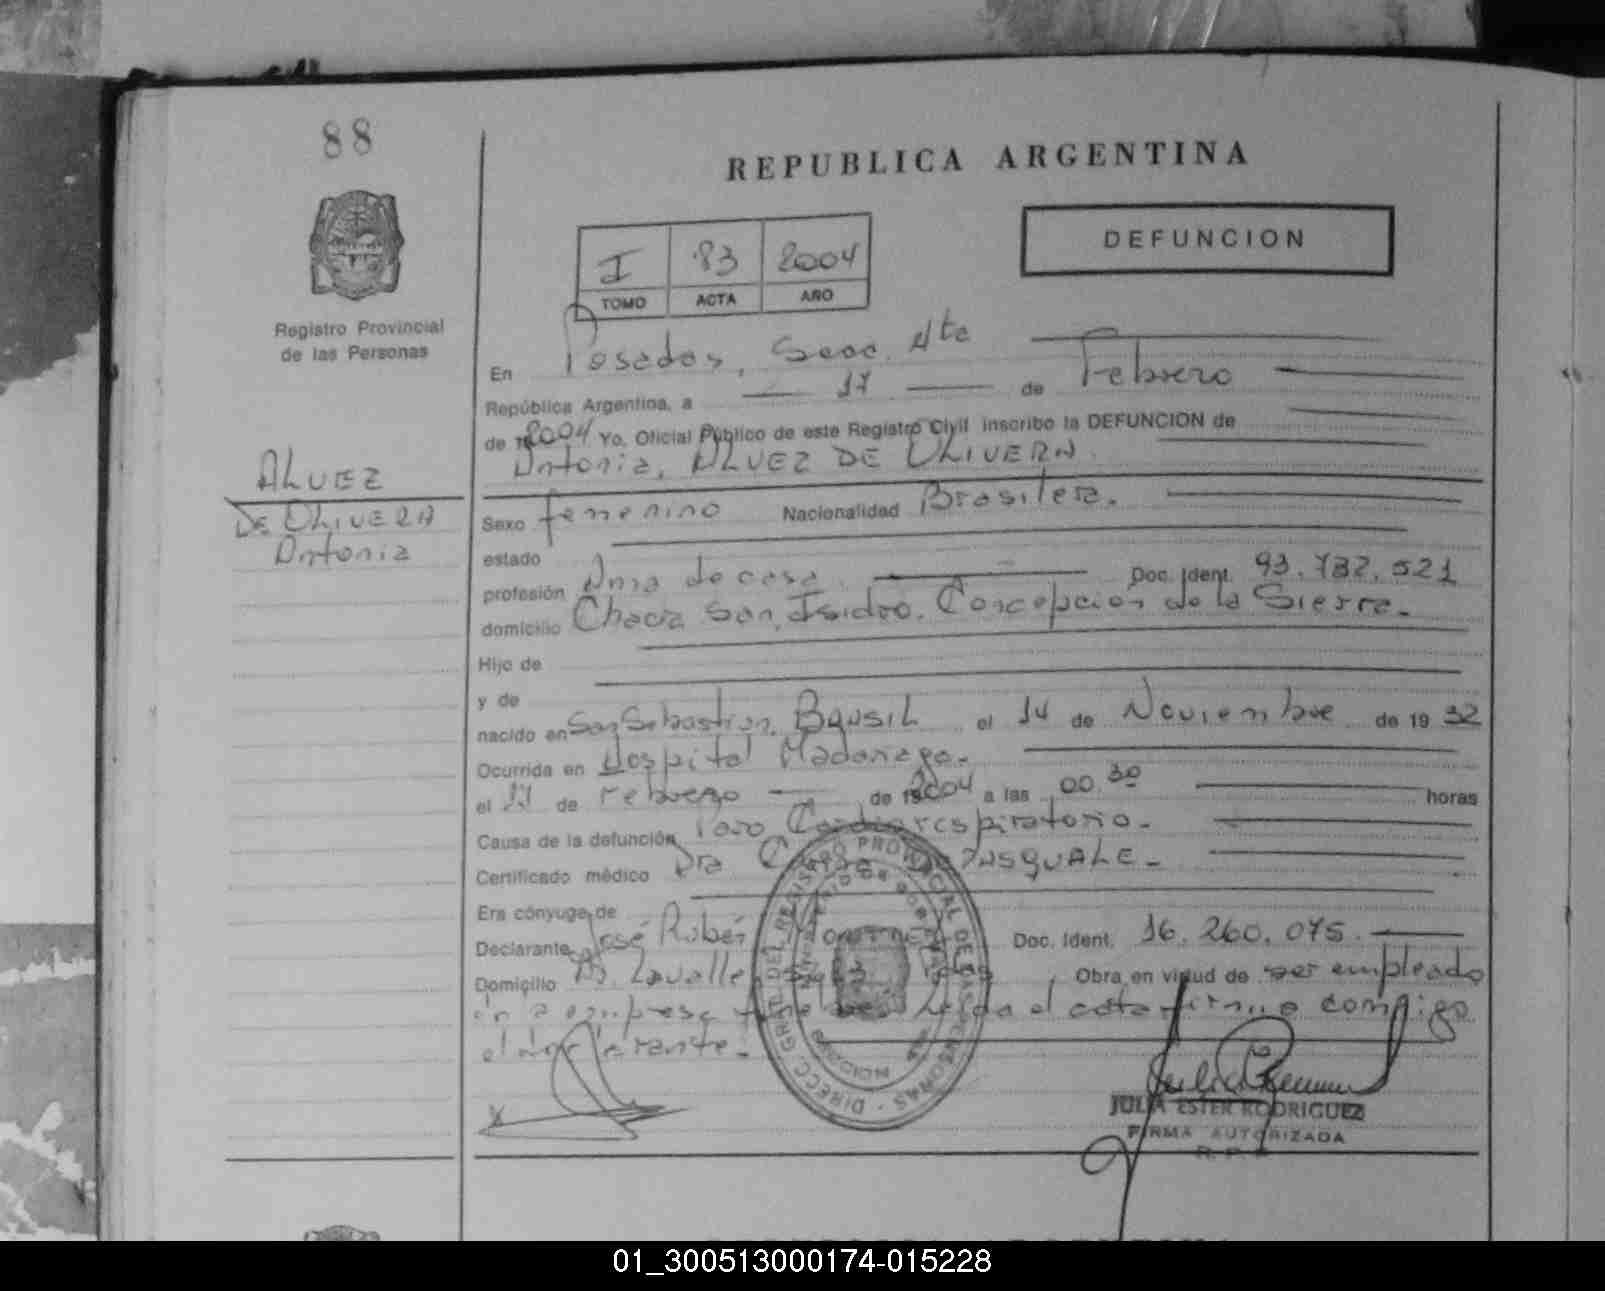 88
REPUBLICA ARGENTINA
Registro Provincial
de las Personas
I 83 2004
TOMO ACTA AÑO
DEFUNCION
En Posadas, Secc. 4ta
República Argentina, a 17 de Febrero
de 2004 Yo, Oficial Público de este Registro Civil inscribo la DEFUNCION de
Antonia, ALVEZ DE OLIVERA.
ALVEZ
DE OLIVERA
Antonia
Sexo femenino Nacionalidad Brasilera.
estado
profesión Ama de casa. Doc. Ident. 93.782.521
domicilio Chacra San Isidro. Concepción de la Sierra.
Hijo de
y de
nacido en San Sebastian, BRASIL el 14 de Noviembre de 19 32
Ocurrida en Hospital Madariaga.
el de Febrero de 2004 a las 00.30 horas
Causa de la defunción Paro Cardiorespiratorio.
Certificado médico Dra PASQUALE.
Era cónyuge de
Declarante José Rubén Doc. Ident. 16.260.075.
Domicilio Av. Lavalle Obra en virtud de ser empleado
en la empresa leída el acta firma conmigo
el declarante.
DIRECC. GRAL. DEL REGISTRO PROVINCIAL DE LAS PERSONAS
JULIA ESTER RODRIGUEZ
FIRMA AUTORIZADA
R. P. P.
01_300513000174-015228